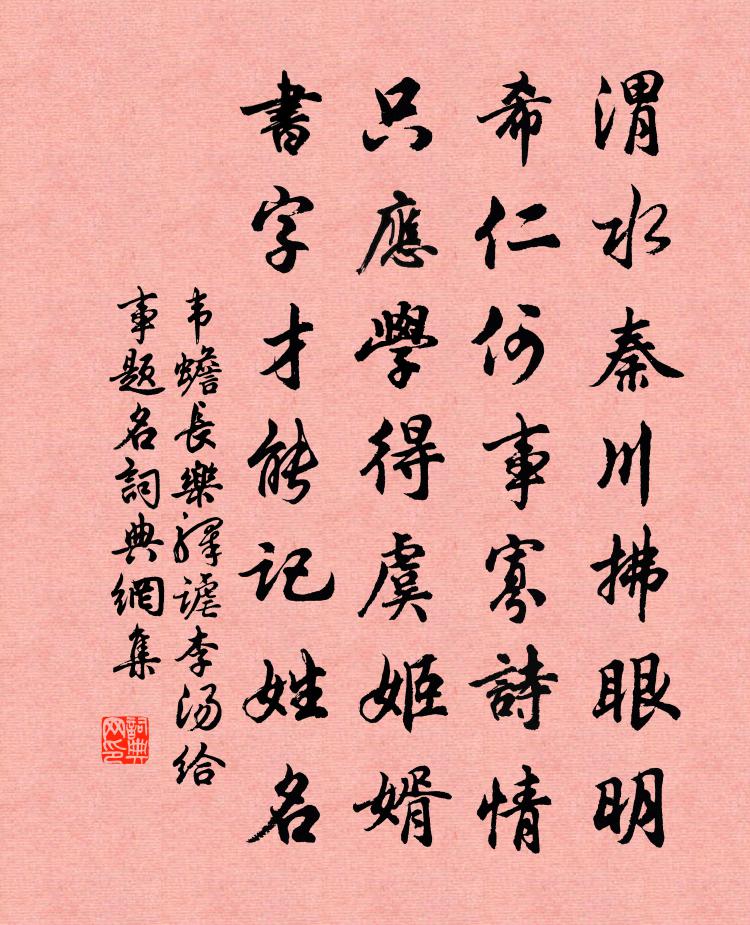 渭水秦川拂眼明
希仁何事寡詩情
只應學得虞姬婿
書字才能記姓名
韦蟾長樂驛謔李湯給
事題名詞典網集
詞典
网印